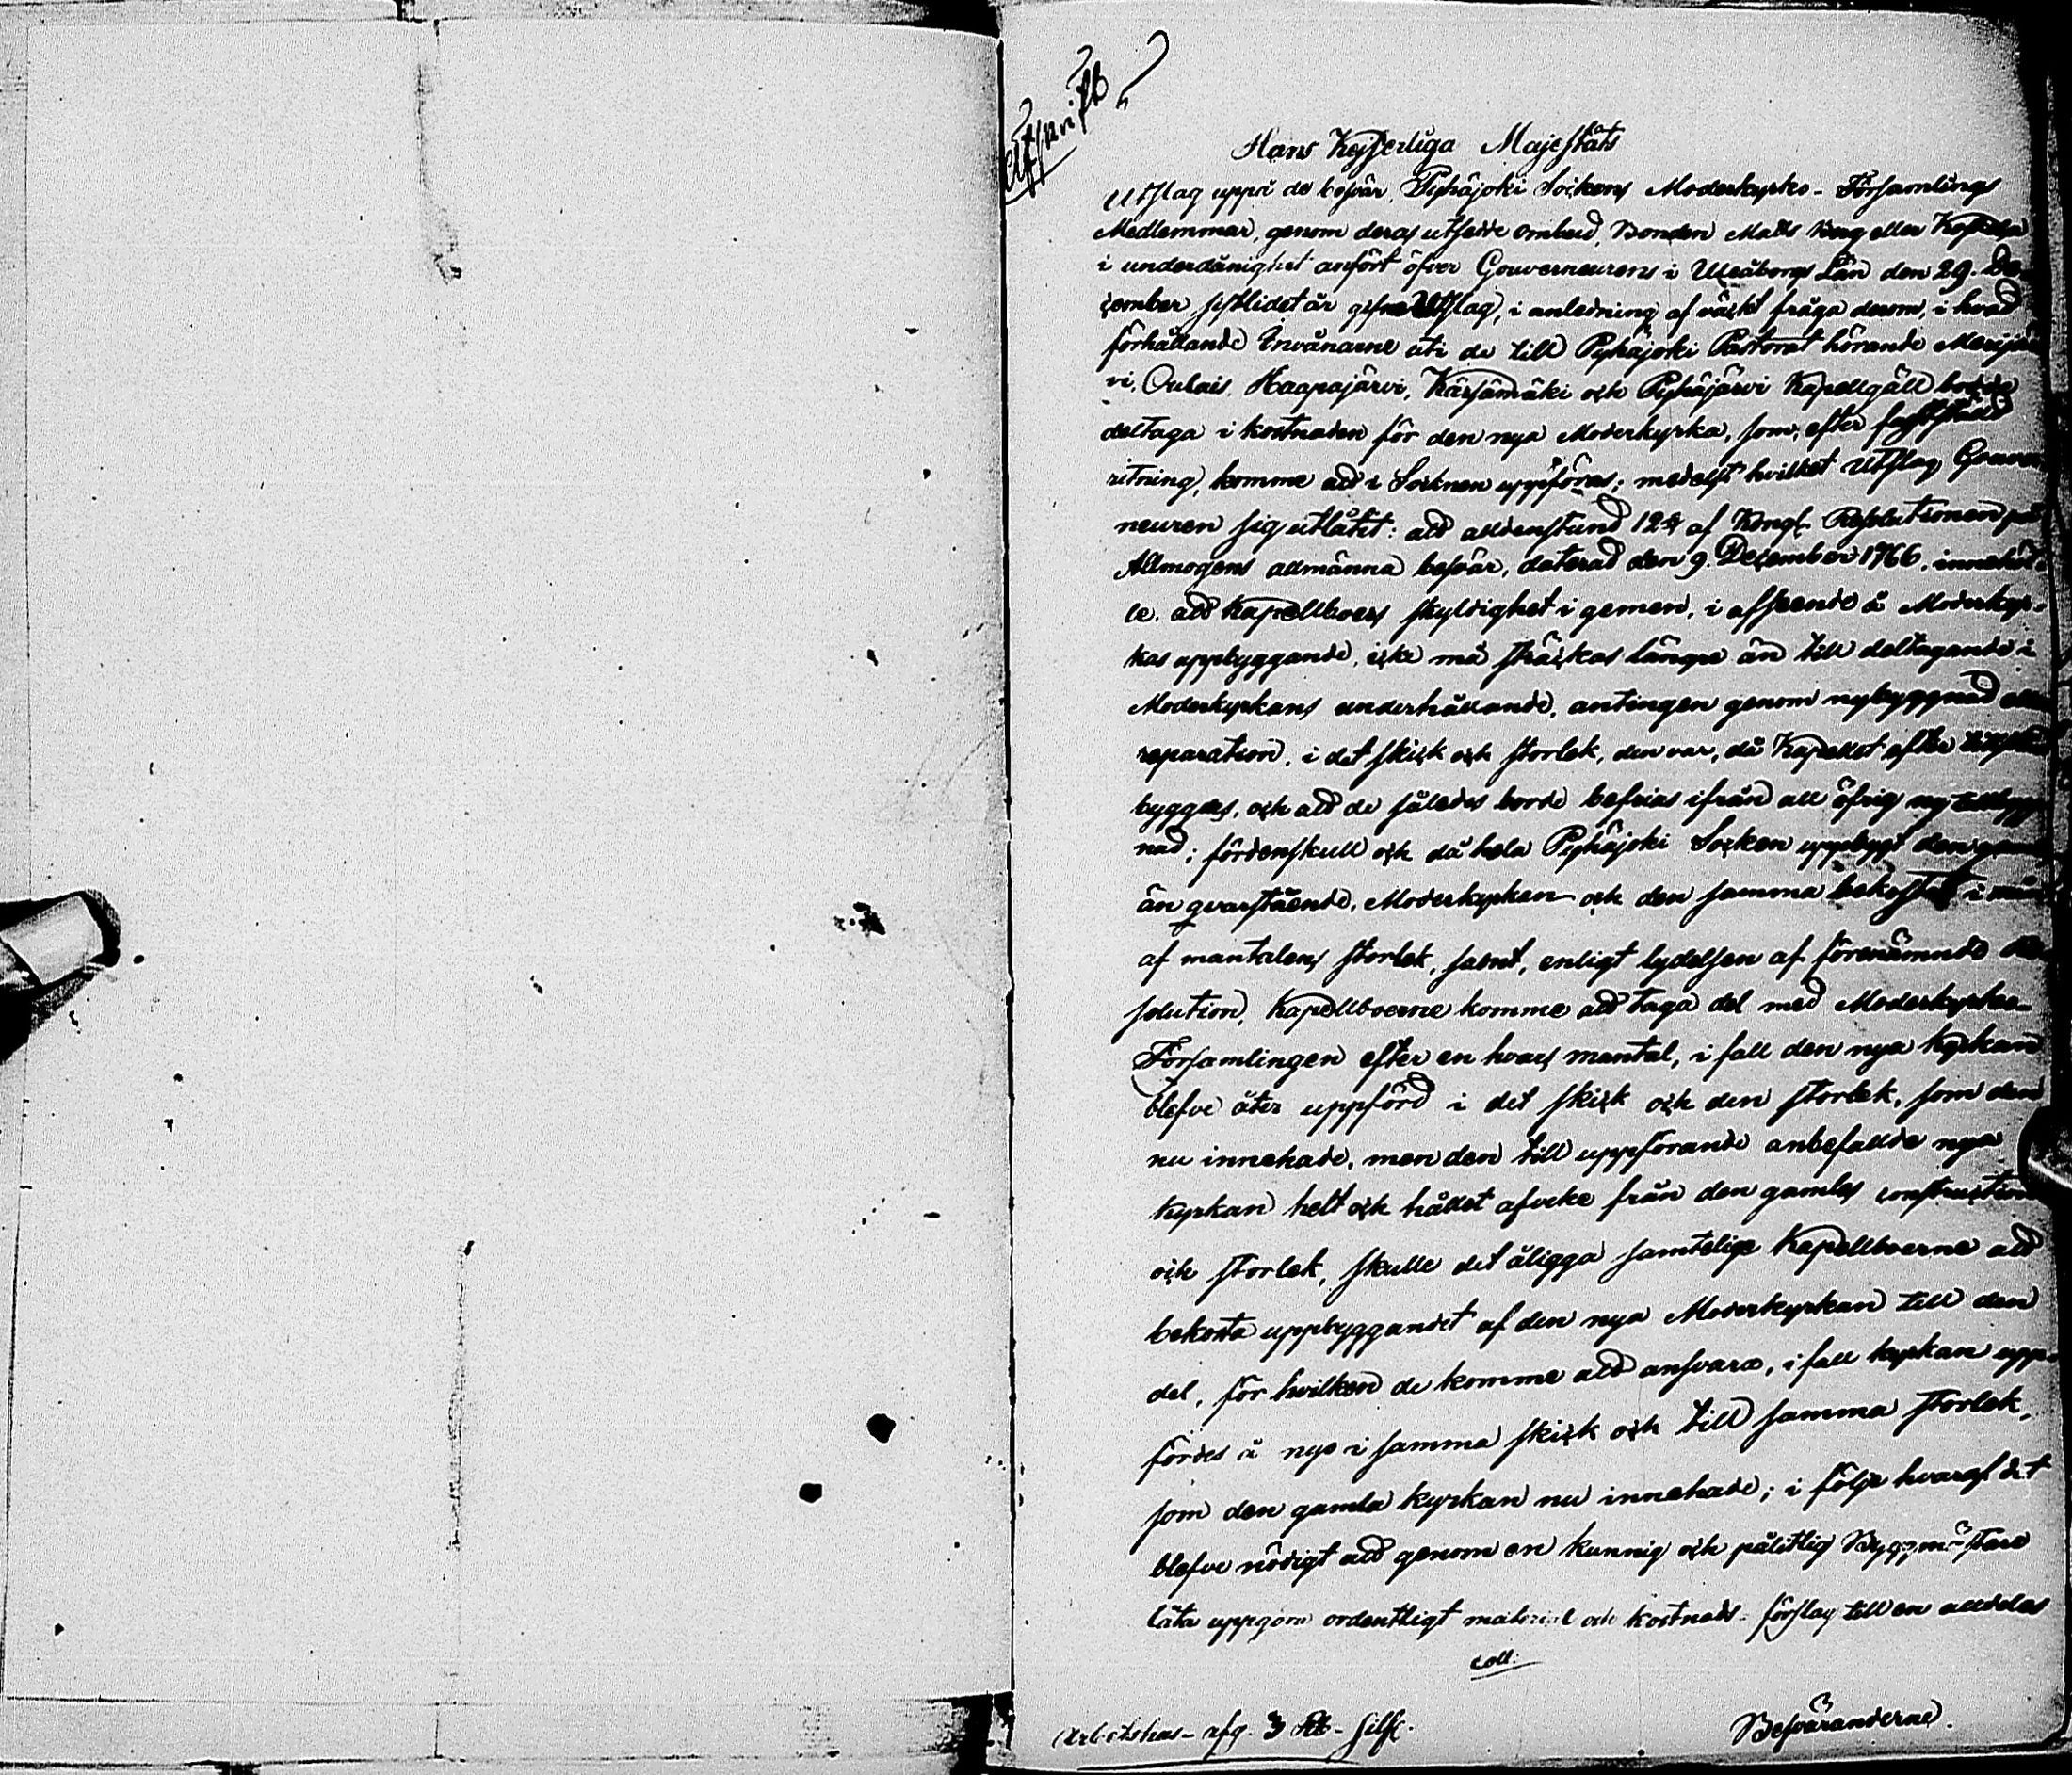 Afskrift
Hans Kejserliga Majestäts
Utslag uppå de besvär, Pyhäjoki Sockens Moderkyrko-Församlings
Medlemmar, genom deras utsedde ombud, Bonden Matts eller
i underdånighet anfört öfver Gouverneurens i Uleåborgs Län den 29. De-
cember sistlidet år gifne Utslag, i anledning af väckt fråga derom, i hvad
förhållande Invånarne uti de till Pyhäjoki Pastorat hörande Merijär-
vi, Oulais, Haapajärvi, Kärsämäki och Pyhäjärvi Kapellgäll borde
deltaga i kostnaden för den nya Moderkyrka, som, efter fastställd
ritning, komme att i Socknen uppföras; medelst hvilket Utslag Gouver-
neuren sig utlåtit: att alldenstund 12 § af Kongl. Resolutionen på
Allmogens allmänna besvär, daterad den 9. December 1766, innehöl-
le, att Kapellboers skyldighet i gemen, i afseende å Moderkyr-
kas uppbyggande, icke må sträckas längre än till deltagande i
Moderkyrkans underhållande, antingen genom nybyggnad eller
reparation, i det skick och storlek, den var, då Kapellet efter
byggdes, och att de således borde befrias ifrån all öfrig ny tillbygg-
nad; fördenskull och då hela Pyhäjoki Socken uppbygt den
än qvarstående, Moderkyrkan och den samma bekostat i mån
af mantalens storlek, samt, enligt lydelsen af förenämnde Re-
solution, Kapellboerne komme att taga del med Moderkyrko-
Församlingen efter en hvars mantal, i fall den nya kyrkan
blefve åter uppförd i det skick och den storlek, som den
nu innehade, men den till uppförande anbefallde nya
kyrkan helt och hållet afveke från den gamles construction
och storlek, skulle det åligga samtelige Kapellboerne att
bekosta uppbyggandet af den nya Moderkyrkan till den
del, för hvilken de komme att ansvara, i fall kyrkan upp-
fördes å nyo i samma skick och till samma storlek,
som den gamla kyrkan nu innehade; i följe hvaraf det
blefve nödigt att genom en kunnig och pålitlig Byggmästare
låta uppgöra ordentligt material och kostnads-förslag till en alldeles
coll:
Arbetshus-afg. 3 - Silfr.
Besväranderne.